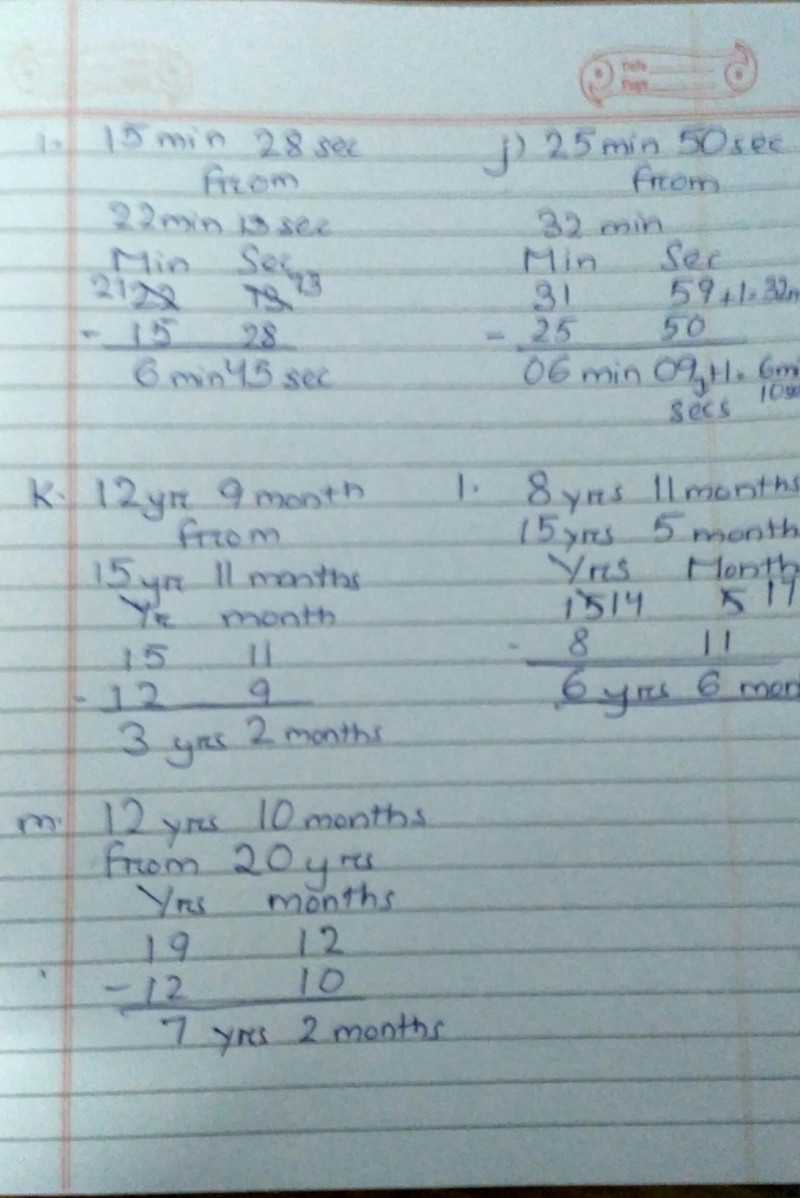 Date
Page
i. 15 min 28 sec
from
22 min 13 sec
Min Sec
21 22 13 73
- 15 28
6 min 45 sec
j) 25 min 50 sec
from
32 min
Min Sec
31 59 +1= 32m
- 25 50
06 min 09 +1= 6mi
secs
K. 12 yr 9 month
from
15 yr 11 months
Yr month
15 11
- 12 9
3 yrs 2 months
l. 8 yrs 11 months
15 yrs 5 month
Yrs Month
15 14 5 17
- 8 11
6 yrs 6 mon
m. 12 yrs 10 months
from 20 yrs
Yrs months
19 12
- 12 10
7 yrs 2 months